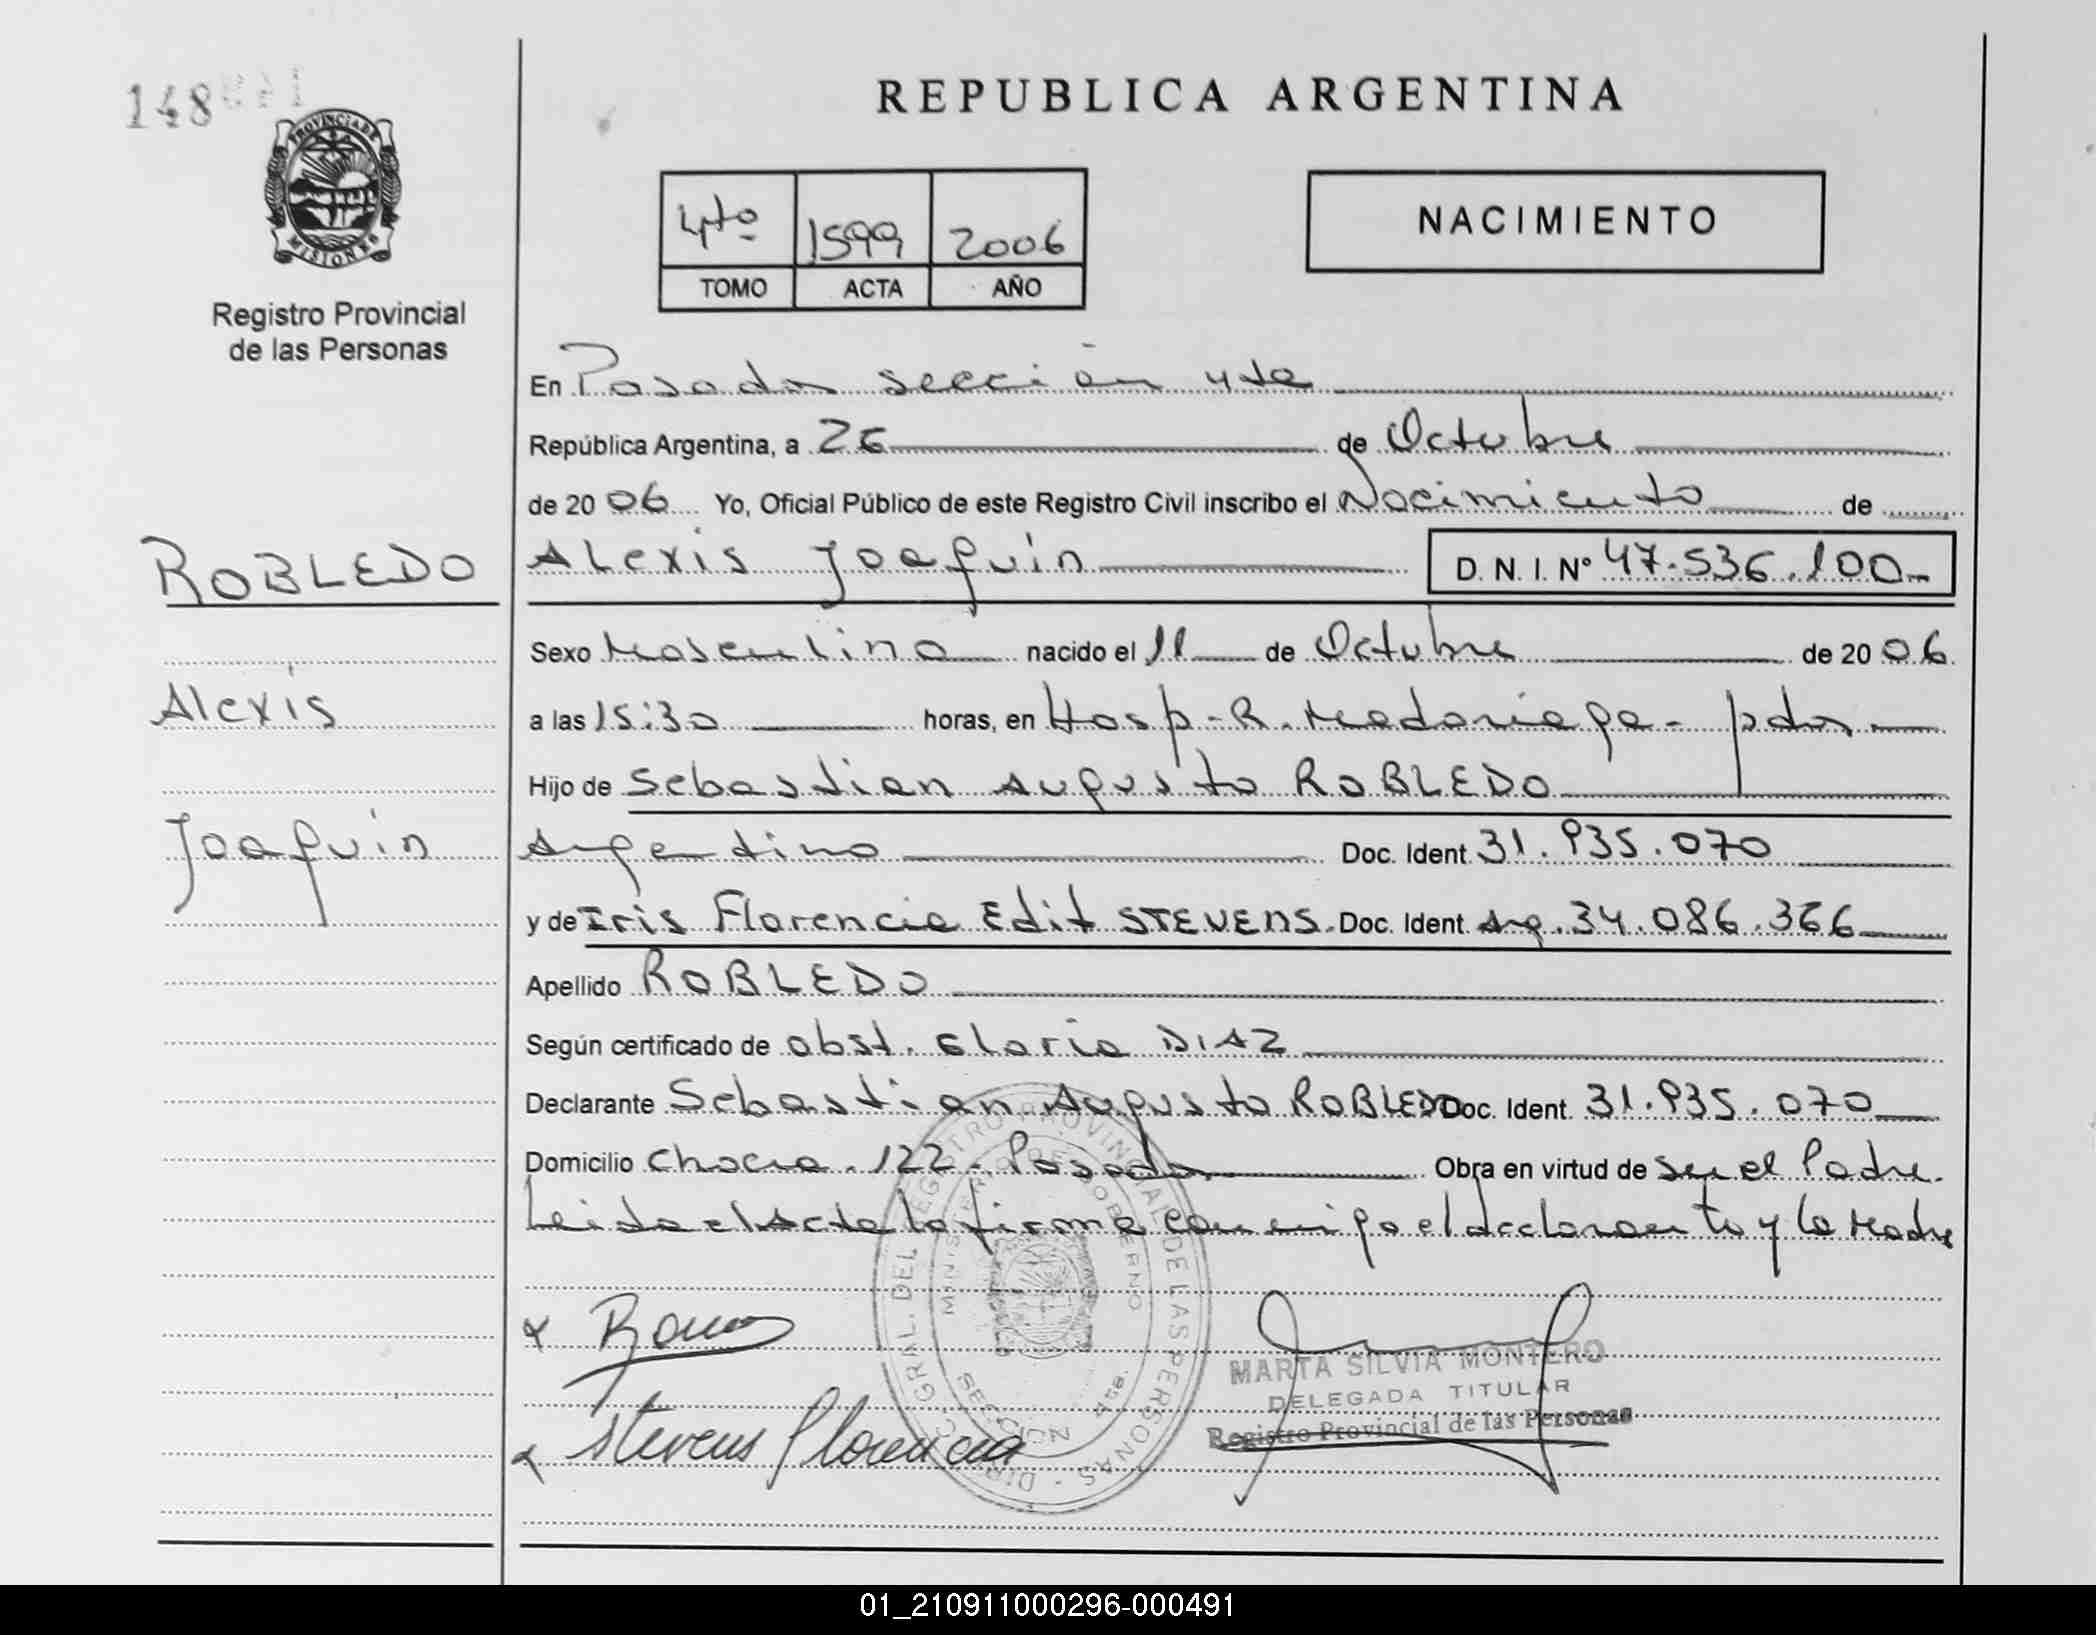 148
REPUBLICA ARGENTINA
PROVINCIA DE
MISIONES
Registro Provincial
de las Personas
4to 1599 2006
TOMO ACTA AÑO
NACIMIENTO
En Posadas sección 4ta
República Argentina, a 26 de Octubre
de 2006 Yo, Oficial Público de este Registro Civil inscribo el Nacimiento de
ROBLEDO
Alexis
Joaquín
Alexis Joaquín D. N. I. Nº 47.536.100
Sexo Masculino nacido el 11 de Octubre de 2006
a las 15:30 horas, en Hosp-R. Madariaga - pdas
Hijo de Sebastian Augusto ROBLEDO
Argentino Doc. Ident. 31.935.070
y de Iris Florencia Edit STEVENS. Doc. Ident. Arg. 34.086.366
Apellido ROBLEDO
Según certificado de obst. Gloria DIAZ
Declarante Sebastian Augusto ROBLEDO Doc. Ident. 31.935.070
Domicilio 122 - Posadas Obra en virtud de ser el Padre.
Leida el Acta la firma conmigo el declarante y la Madre
DIREC. GRAL. DEL REGISTRO PROVINCIAL DE LAS PERSONAS
MINISTERIO DE GOBIERNO
SECCION 4ta.
Stevens Florencia
MARTA SILVIA MONTERO
DELEGADA TITULAR
Registro Provincial de las Personas
01_210911000296-000491